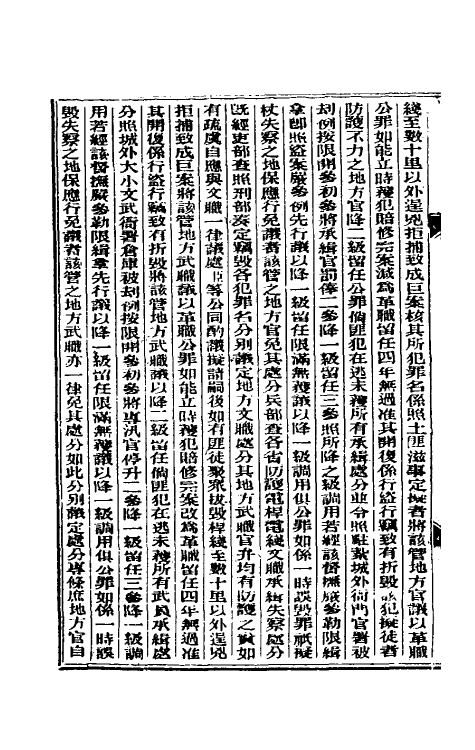 綫至數十里以外逞兇拒捕致成巨案核其所犯罪名係照土匪滋事定擬者將該管地方官議以革職
公罪如能立時獲犯賠修完案減爲革職留任四年無過准其開復係行盜行竊致有折毀該犯擬徒者
防護不力之地方官降二級留任公罪倘匪犯在逃未獲所有承緝處分並令照駐紮城外衙門官署被
刦例按限開參初參將承緝官罰俸二參降一級留任三參照所降之級調用若經該督撫嚴參勒限緝
拿卽照盜案嚴參例先行議以降一級留任限滿無獲議以降一級調用俱公罪如係一時誤毀罪祇擬
杖失察之地保應行免議者該管之地方官免其處分兵部查各省防護電桿電綫文職承緝失察處分
旣經吏部查照刑部奏定竊毀各犯罪名分別議定地方文職處分其地方武職官弁均有防護之責如
有疏虞自應與文職一律議處臣等公同酌議擬請嗣後如有匪徒聚衆拔毀桿綫至數十里以外逞兇
拒捕致成巨案將該管地方武職議以革職公罪如能立時獲犯賠修完案改爲革職留任四年無過准
其開復係行盜行竊致有折毀將該管地方武職議以降二級留任倘匪犯在逃未獲所有武員承緝處
分照城外大小文武衙署倉庫被刦例按限開參初參將專汛官停升二參降一級留任三參降一級調
用若經該督撫嚴參勒限緝拿先行議以降一級留任限滿無獲議以降一級調用俱公罪如係一時誤
毀失察之地保應行免議者該管之地方武職亦一律免其處分如此分別議定處分專條庶地方官自